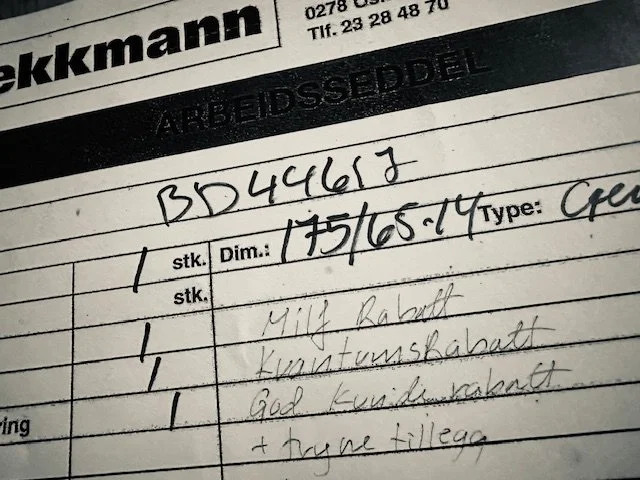 ekkmann
0278 Os
Tlf. 23 28 48 70
ARBEIDSSEDDEL
BD44617
1 stk. Dim.: 175/65-14 Type:
stk.
1 Milf Rabatt
1 KvantumsRabatt
ring 1 God Kunde rabatt
+ tryne tillegg